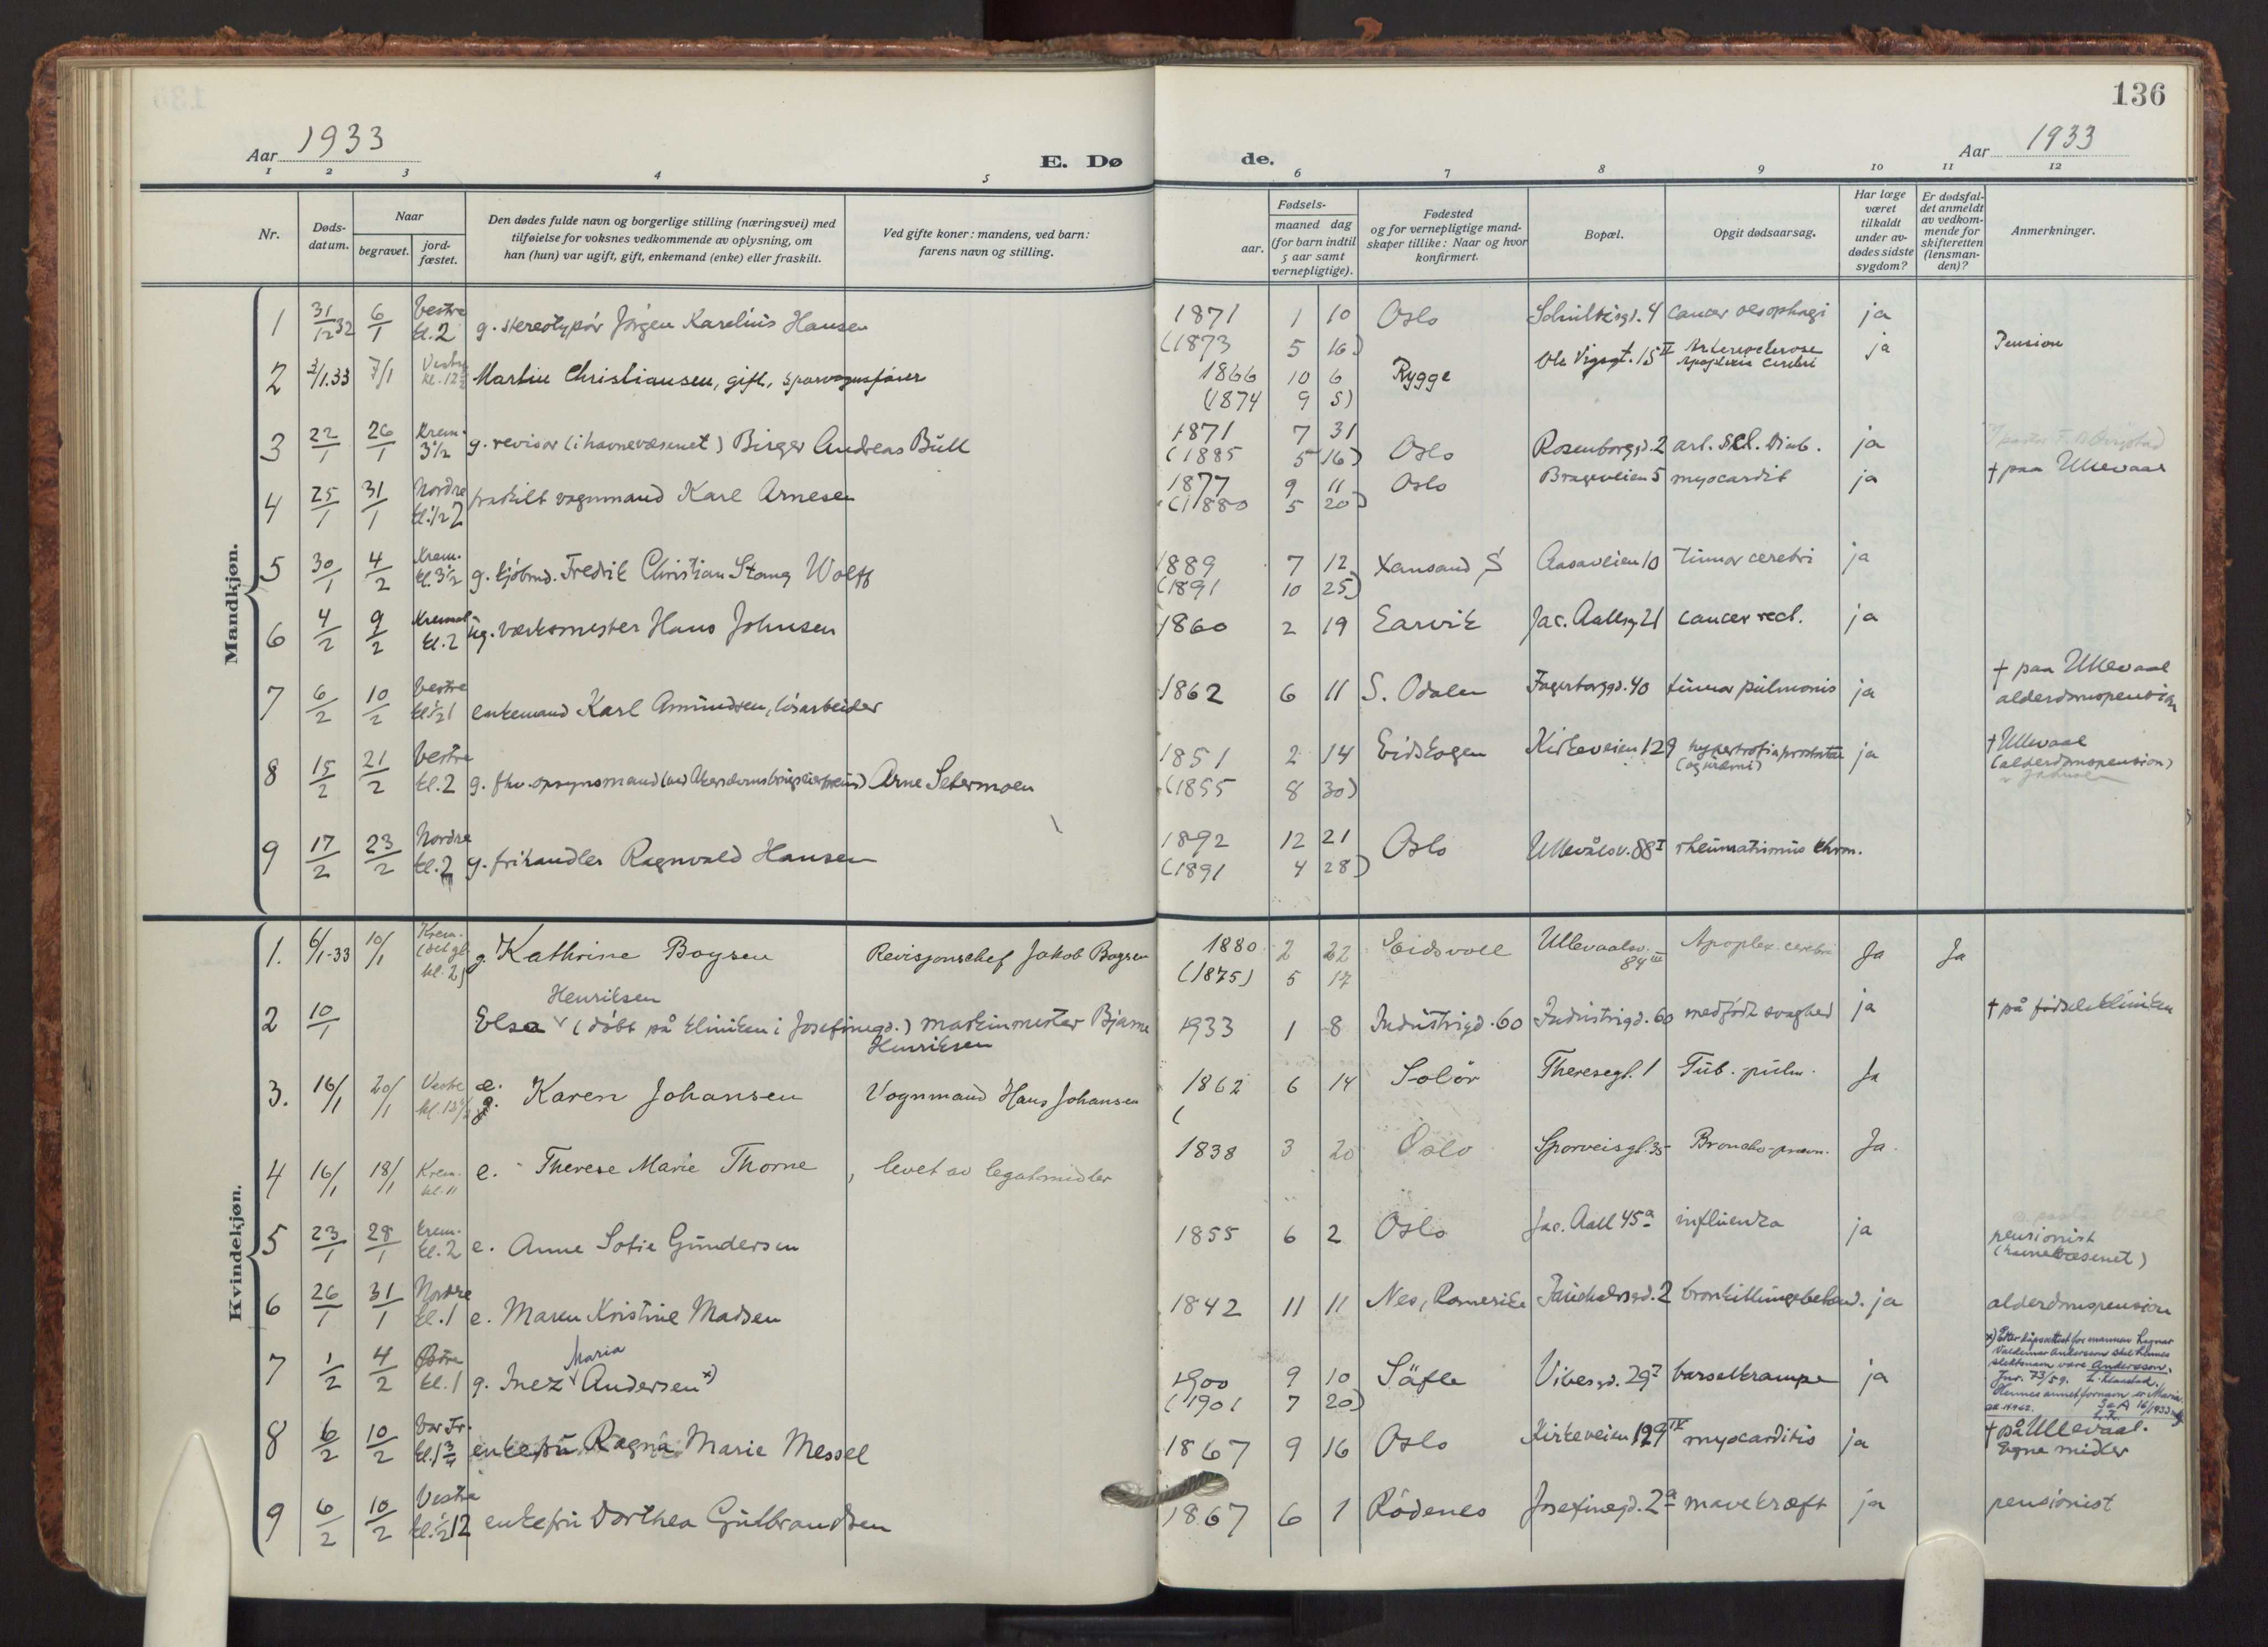 136
Aar 1933
E. Dø
de.
Aar 1933
1 2 3 4 5 6 7 8 9 10 11 12
Nr.
Døds-
datum.
Naar
begravet.
jord-
fæstet.
Den dødes fulde navn og borgerlige stilling (næringsvei) med
tilføielse for voksnes vedkommende av oplysning, om
han (hun) var ugift, gift, enkemand (enke) eller fraskilt.
Ved gifte koner: mandens, ved barn:
farens navn og stilling.
aar.
Fødsels-
maaned dag
(for barn indtil
5 aar samt
vernepligtige).
Fødested
og for vernepligtige mand-
skaper tillike: Naar og hvor
konfirmert.
Bopæl.
Opgit dødsaarsag.
Har læge
været
tilkaldt
under av-
dødes sidste
sygdom?
Er dødsfal-
det anmeldt
av vedkom-
mende for
skifteretten
(lensman-
den)?
Anmerkninger.
Mandkjøn.
1 31/12 32 6/1 Vestre kl. 2 g. stereotypør Jörgen Karelius Hansen 1871 1 10 Oslo Schultzgd. 4 cancer oesophagi ja
(1873 5 16)
2 2/1.33 7/1 Martin Christiansen, gift, sporvognsfører 1866 10 6 Rygge Ole Vigsgt. 15 II Arteriosclerose ja Pension
Apoplexia cerebri
(1874 9 5)
3 22/1 26/1 Krem. 3 1/2 g. revisor (i havnevæsenet) Birger Andreas Bull 1871 7 31 Oslo Rosenborggd. 2 art. scl. Diab. ja
(1885 5 16)
4 25/1 31/1 Nordre kl. 1/2 2 fraskilt vognmand Karl Arnesen 1877 9 11 Oslo Brageveien 5 myocardit ja † paa Ullevaal
(1880 5 20)
5 30/1 4/2 Krem. kl. 3 1/2 g. kjöbmd. Fredrik Christian Stang Wolff 1889 7 12 Xansand S Aasaveien 10 tumor cerebri ja
(1891 10 25)
6 4/2 9/2 Kremat. kl. 2 ug. verksmester Hans Johnsen 1860 2 19 Larvik Jac. Aallsg 21 cancer rect. ja
7 6/2 10/2 Vestre kl. 1/2 1 enkemand Karl Amundsen, løsarbeider 1862 6 11 S. Odalen Fagerborggd. 40 tumor pulmonis ja † paa Ullevaal
alderdomspension
8 15/2 21/2 Vestre kl. 2 g. fhv. opsynsmand Arne Setermoen 1851 2 14 Eidskogen Kirkeveien 129 hypertrofia prostatae ja † Ullevaal
(og uræmi) (alderdomspension)
(1855 8 30)
9 17/2 23/2 Nordre kl. 2 g. frihandler Ragnvald Hansen 1892 12 21 Oslo Ullevålsv. 88 I rheumatismus chron.
(1891 4 28)
Kvindekjøn.
1. 6/1-33 10/1 Krem. kl. 2) g. Kathrine Boysen Revisjonschef Jakob Boysen 1880 2 22 Eidsvoll Ullevaalsv. 84 III Apoplex. cerebri Ja Ja
(1875) 5 17
Henriksen
2 10/1 Elsa (döbt på kliniken i Josefinegd.) maskinmester Bjarne Henriksen 1933 1 8 Industrigd. 60 Industrigd. 60 medfödt svaghed ja † på fødselskliniken
3. 16/1 20/1 Vestre e. g. Karen Johansen Vognmand Hans Johansen 1862 6 14 Solör Theresegt. 1 Tub. pulm. Ja
(
4 16/1 18/1 Krem. kl. 11 e. Therese Marie Thorne, levet av legatmidler 1838 3 20 Oslo Sporveisgt. 35 Broncho-pneum. Ja.
5 23/1 28/1 Krem. kl. 2 e. Anne Sofie Gundersen 1855 6 2 Oslo Jac. Aall 45a influenza ja pensionist
(havnevæsenet)
6 26/1 31/1 Nordre kl. 1 e. Maren Kristine Madsen 1842 11 11 Nes, Romerike Fauchaldsgd. 2 ja alderdomspension
Maria
7 1/2 4/2 Østre kl. 1 g. Inez Andersen x) 1900 9 10 Säfle Vibesgd. 29 I barselkrampe ja
(1901 7 20)
x) Etter dåpsattest for mannen Ragnar
Valdemar Andersson skal hennes
slektsnavn være Andersson.
Jnr. 73/59.
Hennes annet fornavn er Maria.
8 6/2 10/2 Vor Fr. kl. 1 3/4 enkefru Ragna Marie Messel 1867 9 16 Oslo Kirkeveien 129 IV myocarditis ja † på Ullevaal.
Egne midler
9 6/2 10/2 Vestre kl. 1/2 12 enkefru Dorthea Gulbrandsen 1867 6 1 Rödenes Josefinegd. 2a mavekræft ja pensionist